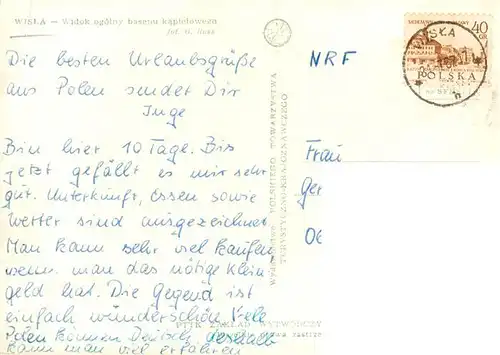 WISŁA — Widok ogólny basenu kąpielowego
fot. G. Russ
Die besten Urlaubsgrüße
aus Polen sendet Dir
Inge
Bin hier 10 Tage. Bis
jetzt gefällt es mir sehr
gut. Unterkunft, Essen sowie
Wetter sind ausgezeichnet
Man kann sehr viel kaufen
wenn man das nötige Klein
geld hat. Die Gegend ist
einfach wunderschön Viele
Polen können Deutsch, deshalb
kann man viel erfahren
WYDAWNICTWO POLSKIEGO TOWARZYSTWA
TURYSTYCZNO-KRAJOZNAWCZEGO
PTTK ZAKŁAD WYTWÓRCZY
NRF
Frau
Ger
06
40
GR
WISŁA
POLSKA